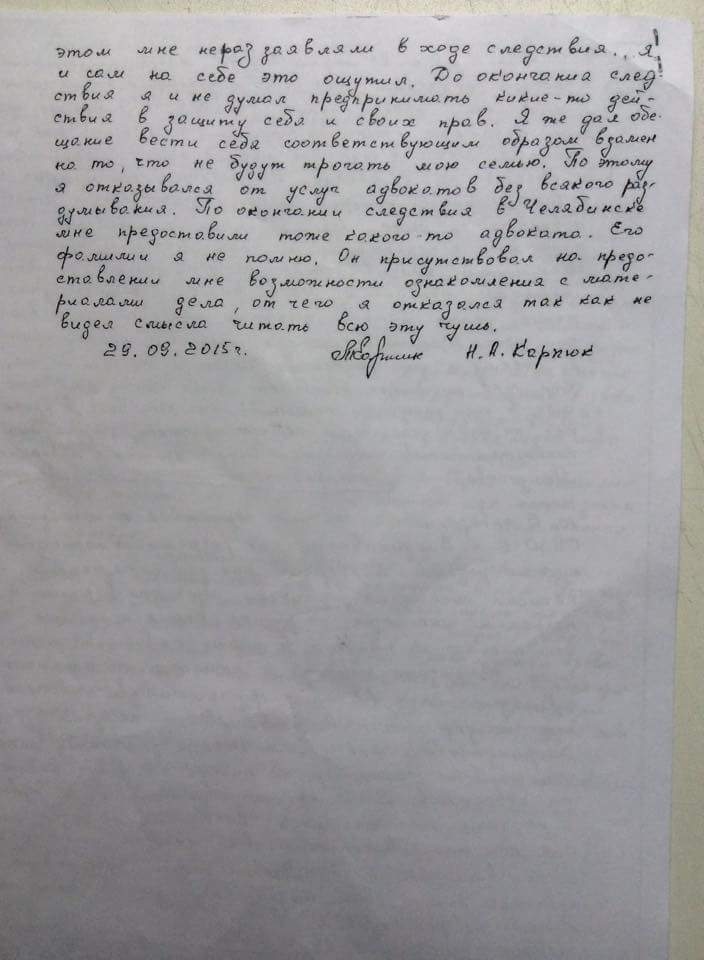 этом мне нераз заявляли в ходе следствия. Я
и сам на себе это ощутил. До окончания след
ствия я и не думал предпринимать кикие-то дей-
ствия в защиту себя и своих прав. Я же дал обе-
щание вести себя соответствующим образом взамен
на то, что не будут трогать мою семью. По этому
я отказывался от услуг адвокатов без всякого раз-
думывания. По окончании следствия в Челябинске
мне предоставили тоже какого-то адвоката. Его
фамилии я не помню. Он присутствовал на предо-
ставлении мне возможности ознакомления с мате-
риалами дела, от чего я отказался так как не
видел смысла читать всю эту чушь.
29.09.2015г. Н.А. Карпюк